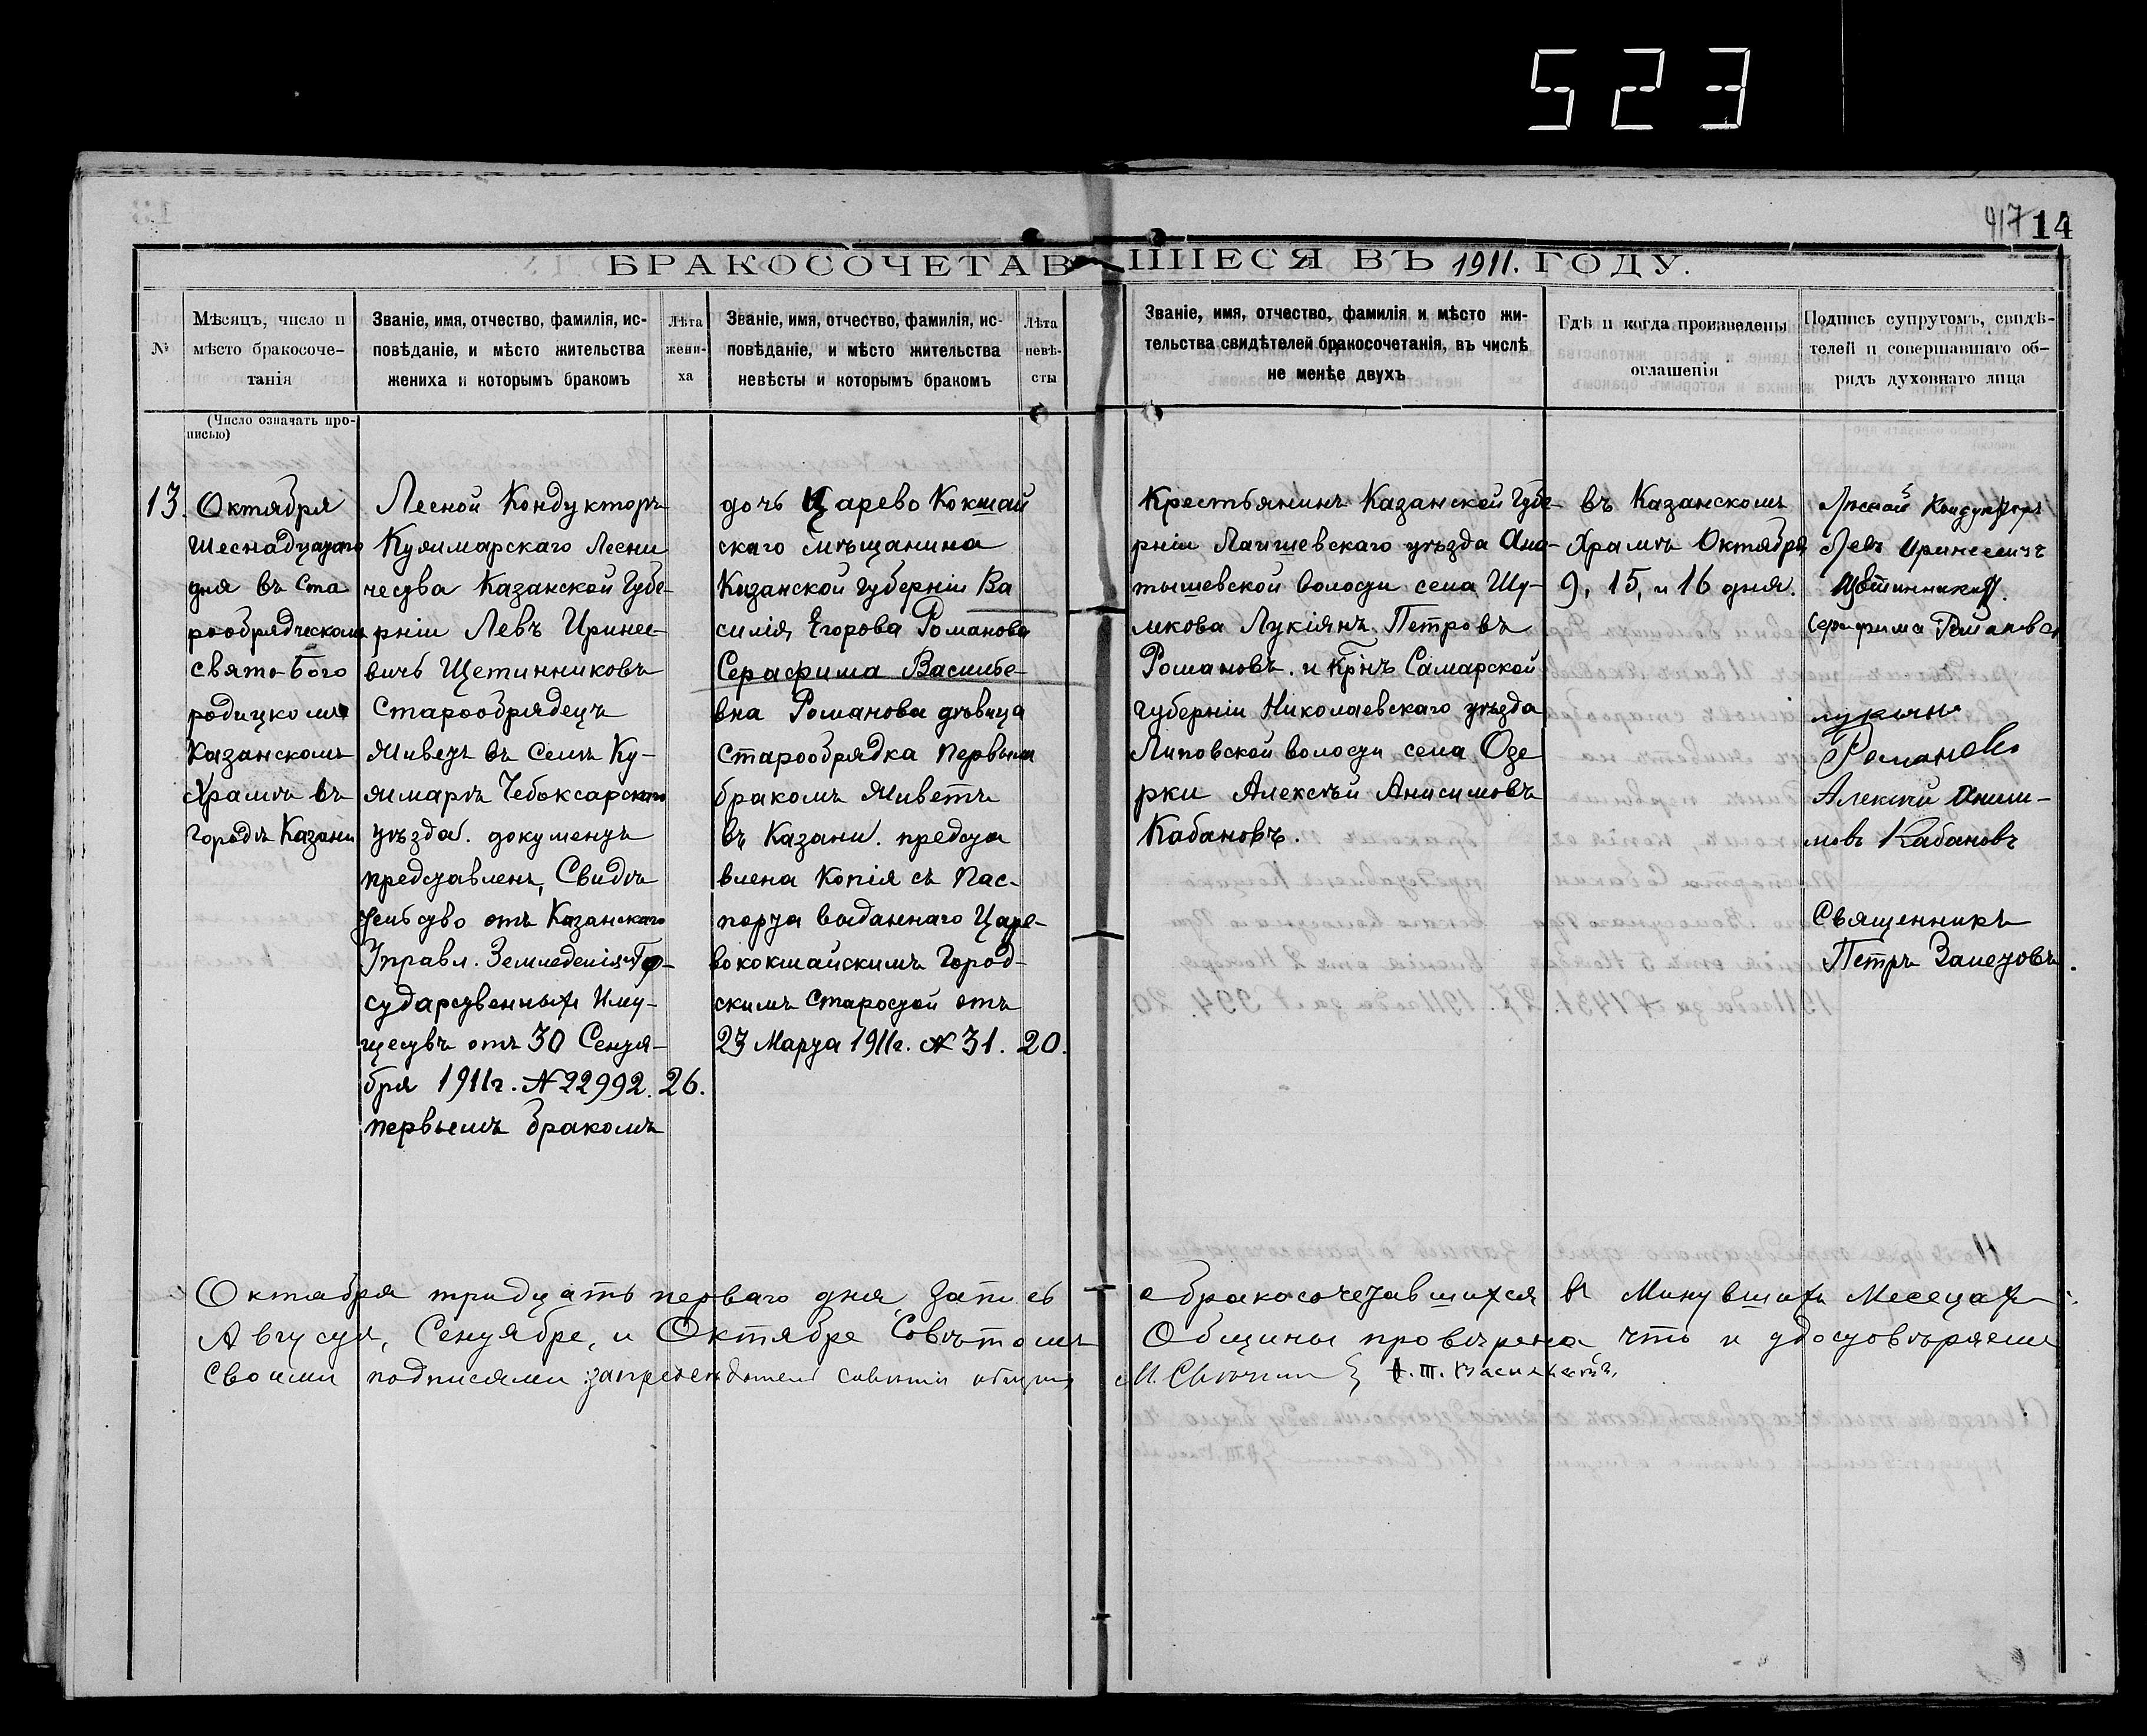 523
417 14
БРАКОСОЧЕТАВШІЕСЯ ВЪ 1911. ГОДУ.
№
Мѣсяцъ, число и
мѣсто бракосоче-
танія
Званіе, имя, отчество, фамилія, ис-
повѣданіе, и мѣсто жительства
жениха и которымъ бракомъ
Лѣта
жени-
ха
Званіе, имя, отчество, фамилія, ис-
повѣданіе, и мѣсто жительства
невѣсты и которымъ бракомъ
Лѣта
невѣ-
сты
Званіе, имя, отчество, фамилія и мѣсто жи-
тельства свидѣтелей бракосочетанія, въ числѣ
не менѣе двухъ
Гдѣ и когда произведены
оглашенія
Подпись супруговъ, свидѣ-
телей и совершавшаго об-
рядъ духовнаго лица
(Число означать про-
писью)
13.
Октября
Шеснадцатаго
дня въ Ста
рообрядческомъ
свято-Бого
родицкомъ
Казанскомъ
Храмѣ въ
городѣ Казани
Лесной Кондукторъ
Куяимарскаго Лесни
чества Казанской Губе-
рніи Левъ Ириnее-
вичъ Щетинниковъ
Старообрядецъ
Живетъ въ селѣ Ку-
яимарѣ Чебоксарскаго
уѣзда. документъ
представленъ, Свидѣ
тельство отъ Казанскаго
Управл. Земледелія и Го-
сударственныхъ Иму-
ществъ отъ 30 Сентя-
бря 1911г. № 22992.
первымъ бракомъ
26.
дочь Царево Кокшай
скаго мѣщанина
Казанской губерніи Ва
силія Егорова Романова
Серафима Василье-
вна Романова дѣвица
Старообрядка первымъ
бракомъ Живетъ
въ Казани. предста
влена Копія съ Пас-
порта выданнаго Царе-
вококшайскимъ Город-
скимъ Старостой отъ
23 Марта 1911г. № 31.
20.
Крестьянинъ Казанской Губе-
рніи Лаишевскаго уѣзда Ана-
тышевской волости села Шу-
мкова Лукіянъ Петровъ
Романовъ. и Крнъ Самарской
Губерніи Николаевскаго уѣзда
Липовской волости села Озе
рки Алексѣй Анисимовъ
Кабановъ.
въ Казанскомъ
Храмѣ Октября
9, 15, и 16 дня.
Лѣсной Кондукторъ
Левъ Иринеевичъ
Щетинниковъ.
Серафима Романова
Лукіянъ
Романовъ
Алексѣй Аниси-
мовъ Кабановъ
Священникъ
Петръ Залетовъ.
Октября тридцать перваго дня, запись о бракосочетавшихся въ Минувшихъ Месецахъ:
Августѣ, Сентябре, и Октябре Совѣтомъ Общины провѣрена что и удостовѣряемъ
своими подписями: совѣта общины